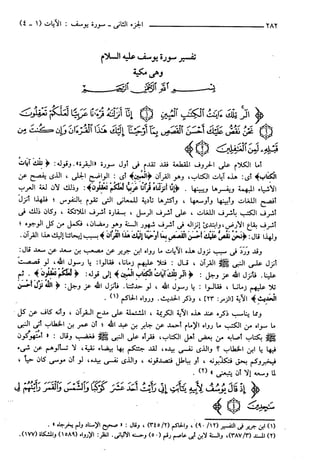 ٢٨٢ ـــــــــــــــــــــــــــــــــــــ الجزء الثاني - سورة يوسف : الآيات (١ - ٤)
تفسير سورة يوسف عليه السلام
وهى مكية
﴿ الٓر تِلْكَ ءَايَٰتُ ٱلْكِتَٰبِ ٱلْمُبِينِ ۝ إِنَّآ أَنزَلْنَٰهُ قُرْءَٰنًا عَرَبِيًّا لَّعَلَّكُمْ تَعْقِلُونَ
۝ نَحْنُ نَقُصُّ عَلَيْكَ أَحْسَنَ ٱلْقَصَصِ بِمَآ أَوْحَيْنَآ إِلَيْكَ هَٰذَا ٱلْقُرْءَانَ وَإِن كُنتَ مِن
قَبْلِهِۦ لَمِنَ ٱلْغَٰفِلِينَ ۝ ﴾
أما الكلام على الحروف المقطعة فقد تقدم فى أول سورة «البقرة». وقوله: ﴿تلك آيات
الكتاب﴾ أى: هذه آيات الكتاب، وهو القرآن ﴿المبين﴾ أى: الواضح الجلى ، الذى يفصح عن
الأشياء المبهمة ويفسرها ويبينها . ﴿إنا أنزلناه قرآنا عربيا لعلكم تعقلون﴾ : وذلك لأن لغة العرب
أفصح اللغات وأبينها وأوسعها، وأكثرها تأدية للمعانى التى تقوم بالنفوس ؛ فلهذا أنزل
أشرف الكتب بأشرف اللغات ، على أشرف الرسل ، بسفارة أشرف الملائكة ، وكان ذلك فى
أشرف بقاع الأرض، وابتدئ إنزاله فى أشرف شهور السنة وهو رمضان، فكمل من كل الوجوه ؛
ولهذا قال: ﴿نحن نقص عليك أحسن القصص بما أوحينا إليك هذا القرآن﴾ بسبب إيحائنا إليك هذا القرآن.
وقد ورد فى سبب نزول هذه الآيات ما رواه ابن جرير عن مصعب بن سعد عن سعد قال:
أنزل على النبى ﷺ القرآن ، قال : فتلا عليهم زمانا، فقالوا: يا رسول الله، لو قصصت
علينا. فأنزل الله عز وجل : ﴿ الر تلك آيات الكتاب المبين ﴾ إلى قوله: ﴿ لعلكم تعقلون ﴾ . ثم
تلا عليهم زمانا ، فقالوا : يا رسول الله ، لو حدثتنا. فأنزل الله عز وجل: ﴿الله نزل أحسن
الحديث ﴾ الآية [الزمر: ٢٣] ، وذكر الحديث . ورواه الحاكم (١) .
ومما يناسب ذكره عند هذه الآية الكريمة ، المشتملة على مدح القرآن ، وأنه كاف عن كل
ما سواه من الكتب ما رواه الإمام أحمد عن جابر بن عبد الله ؛ أن عمر بن الخطاب أتى النبى
ﷺ بكتاب أصابه من بعض أهل الكتاب، فقرأه على النبى ﷺ فغضب وقال : « أمتهوكون
فيها يا ابن الخطاب ؟ والذى نفسى بيده، لقد جئتكم بها بيضاء نقية، لا تسألوهم عن شىء
فيخبروكم بحق فتكذبونه ، أو بباطل فتصدقونه ، والذى نفسى بيده، لو أن موسى كان حيا ،
لما وسعه إلا أن يتبعنى » (٢) .
﴿ إِذْ قَالَ يُوسُفُ لِأَبِيهِ يَٰٓأَبَتِ إِنِّى رَأَيْتُ أَحَدَ عَشَرَ كَوْكَبًا وَٱلشَّمْسَ وَٱلْقَمَرَ رَأَيْتُهُمْ لِى
سَٰجِدِينَ ۝ ﴾
(١) ابن جرير فى التفسير (١٢ / ٩٠) ، والحاكم (٢ / ٣٤٥) ، وقال : « صحيح الإسناد ولم يخرجاه » .
(٢) المسند (٣ / ٣٨٧)، والسنة لابن أبى عاصم رقم (٥٠) وحسنه الألبانى. انظر: الإرواء (١٥٨٩) والمشكاة (١٧٧).